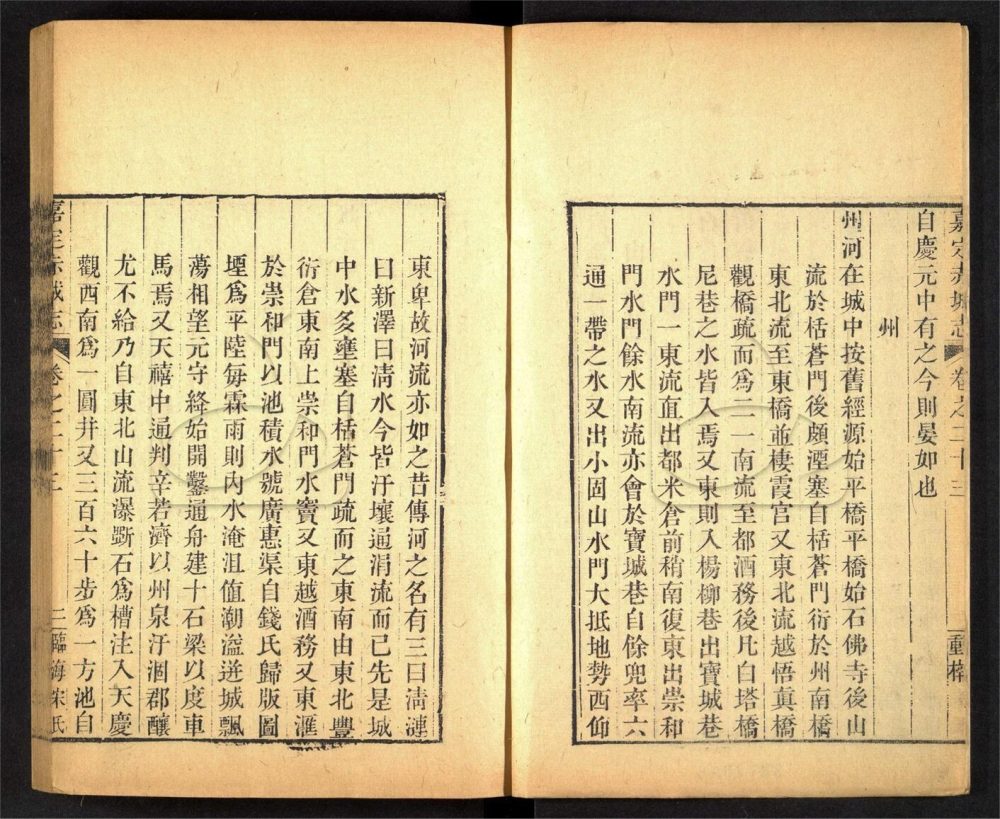 嘉定赤城志 卷之二十三 重梓
自慶元中有之今則晏如也
州
州河在城中按舊經源始平橋平橋始石佛寺後山
流於栝蒼門後頗湮塞自栝蒼門衍於州南橋
東北流至東橋並棲霞宮又東北流越悟眞橋
觀橋疏而爲二一南流至都酒務後凡白塔橋
尼巷之水皆入焉又東則入楊柳巷出寶城巷
水門一東流直出都米倉前稍南復東出崇和
門水門餘水南流亦會於寶城巷自餘兜率六
通一帶之水又出小固山水門大抵地勢西仰
東卑故河流亦如之昔傳河之名有三曰淸漣
曰新澤曰淸水今皆汙壤逈涓流而已先是城
中水多壅塞自栝蒼門疏而之東南由東北豐
衍倉東南上崇和門水竇又東越酒務又東滙
於崇和門以池積水號廣惠渠自錢氏歸版圖
堙爲平陸每霖雨則內水淹沮值潮溢迸城飄
蕩相望元守絳始開鑿通舟建十石梁以度車
馬焉又天禧中通判辛若濟以州泉汙涸郡釀
尤不給乃自東北山流瀑斲石爲槽注入天慶
觀西南爲一圓井又三百六十步爲一方池自
嘉定赤城志 卷之二十三 二臨海宋氏